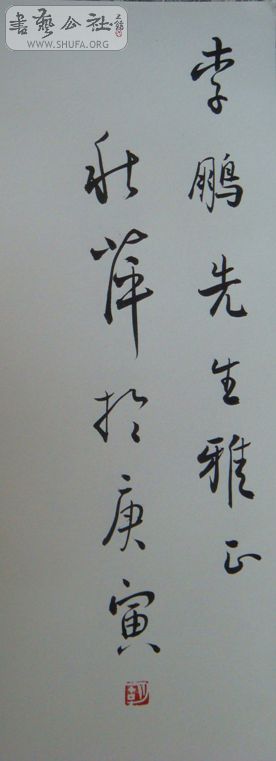 書藝公社
WWW.SHUFA.ORG
李鹏先生雅正
秋萍於庚寅